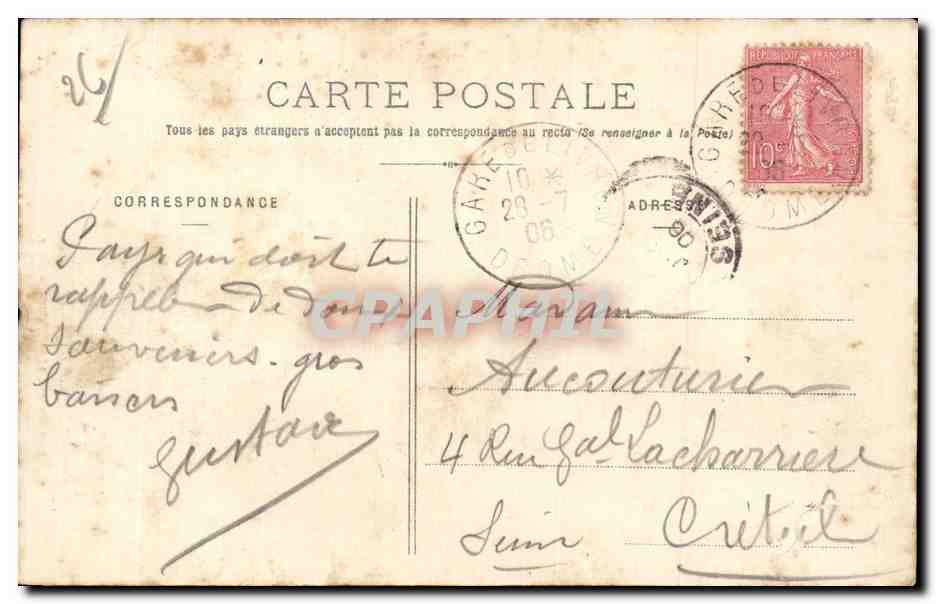 26
CARTE POSTALE
Tous les pays étrangers n'acceptent pas la correspondance au recto (Se renseigner à la Poste)
RÉPUBLIQUE FRANÇAISE
10c
GARE DE
10
28 - 7
06
DROME
CORRESPONDANCE
ADRESSE
SEINE
06
Pays qui doit te
rappeler de doux
souvenirs. gros
baisers
Gustave
Madame
Aucouturier
4 Rue Gal Lacharrière
Seine Créteil
CPAPHIL